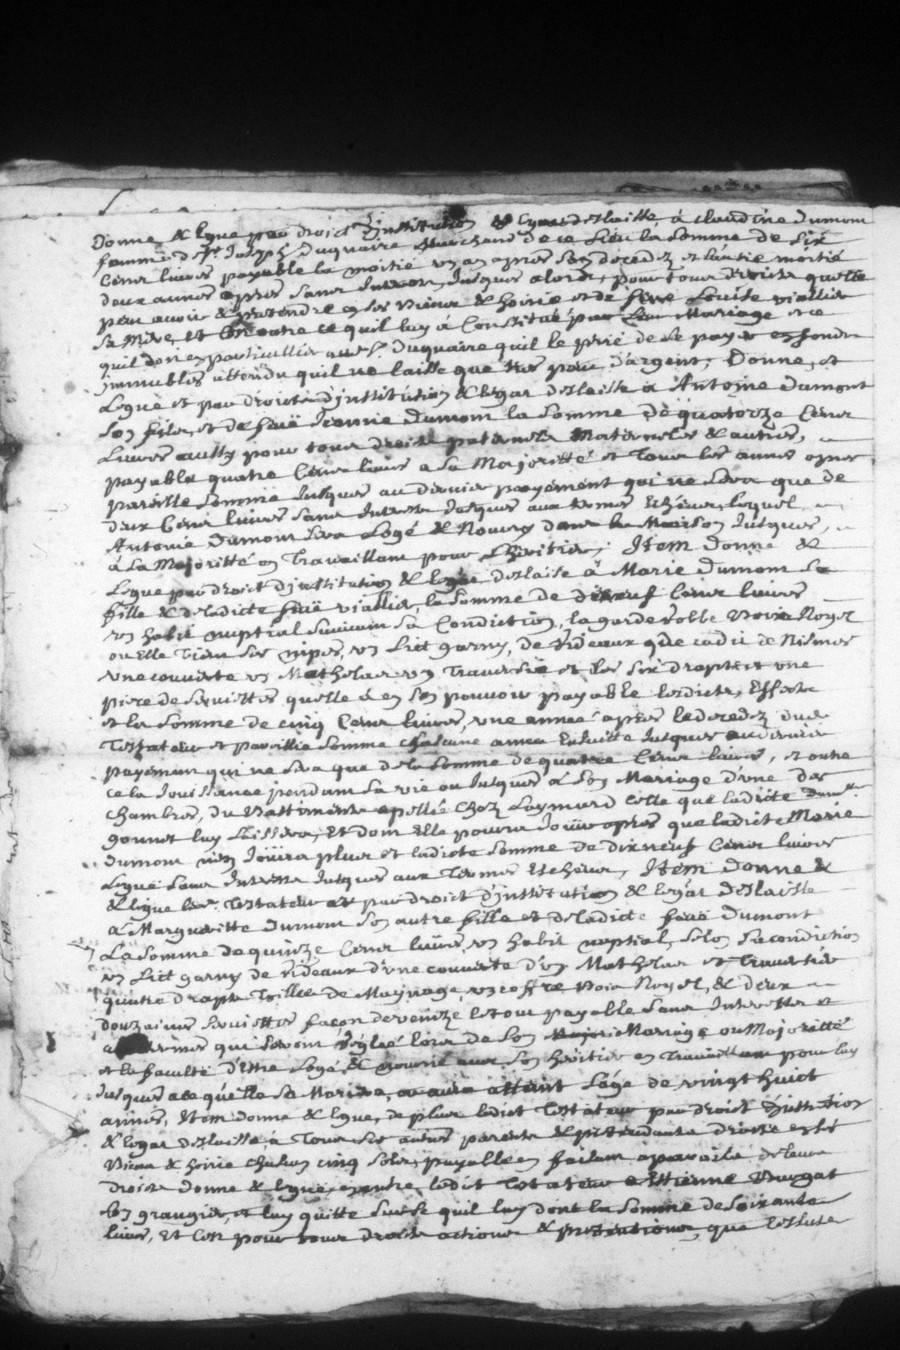 Donne & legue par droict d'institution & legat delaisse à Claudine Dumont
femme de Sr Joseph Duquaire Marchand de ce lieu la somme de six
Cens livres payable la moitié un an apres son decedz et l'autre moitié
deux annees apres sans Interest Jusques alors, pour tous droicts quelle
peut avoir & pretendre en ses biens & hoirie et de feue Louise viallier
sa Mere, et Oultre ce quil luy à Constitué par son Mariage et ce
quil doit en particullier audt Sr Duquaire quil le prie de se payer en fonds
immeubles attendu quil ne laisse que tres peu d'argent; Donne, et
Legue et par droict d'institution & legat delaisse à Antoine Dumont
son fils, et de feuë Jeanne Dumont la somme de quatorze Cens
Livres aussy pour tous droicts paternels Maternels & autres,
payable quatre Cens livres a sa Majoritté et tous les annes apres
pareille somme Jusques au dernier payement qui ne sera que de
deux Cens livres sans Interests Jusques aux termes Echeus, lequel
Antoine Dumont sera Logé & Noury dans la Maison Jusques,
à sa Majoritté en Travaillant pour L'heritier; Item Donne &
Legue par droict d'institution & legat delaise à Marie Dumont sa
fille & de ladicte feuë viallier, la somme de dixneuf Cens livres
un habit nuptial suivant sa Condiction, la garderobbe bois Noyer
ou Elle Tient ses nipes, un Lict garny, de Rideaux de cadis de Nismes
une couverte un Mathelas un Traversie et des six draps et une
piece de serviettes quelle à en son pouvoir payable lesdicts Effects
et la somme de cinq Cens livres, une année apres le decedz dudt
Testateur et pareillie somme chascune annee Ensuitte Jusques au dernier
payement qui ne sera que de la somme de quatre Cens livres, et outre
ce la Jouissance pendant sa vie ou Jusques à son Mariage d'une des
Chambres, du Battiment apellé Chez Laymard celle que ladicte
luy Laissera, Et dont Elle pourra Jouir apres que ladicte Marie
Dumont n'en Jouira plus et ladicte somme de dixneuf Cens livres
Legué sans Interests Jusques aux Termes Echeus, Item donne &
& legue ledt Testateur et par droict d'institution & legat delaisse
à Margueritte Dumont son autre fille et de ladicte feuë Dumont
La somme de quinze Cens livres, un habit nuptial, selon sa condiction
un Lict garny de rideaux d'une couverte d'un Mathelas et Traversier
quatre draps Toille de Maynage, un coffre bois Noyer, & deux
douzaines serviettes façon de venize le tout payable sans Interests et
a termes qui seront reglés lors de son Mariage ou Majoritté
et la faculté d'Estre Logé & nourie avec son heritier en Travaillant pour luy
Jusques a ce qu'elle se Marie ou aura attaint l'âge de vingt huict
annes, Item donne & legue, de plus ledict Testateur par droict d'Institution
& legat delaisse à Tous ses autres parents & pretendants droicts en ses
Biens & hoirie chascun cinq sols, payable en faisant aparoitre de leurs
droicts donne & legue, en outre ledit Testateur a Estienne Burgat
son grangier, et luy quitte sur ce quil luy doit la somme de soixante
livres, Et C'est pour tous droicts actions & pretentions, que lesdicts